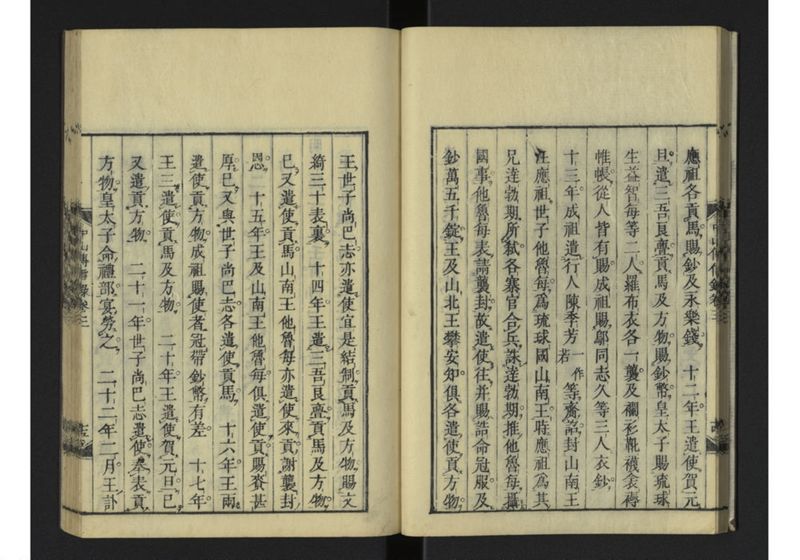 應祖各貢馬賜鈔及永樂錢　十二年王遣使賀元
旦遣三吾良亹貢馬及方物賜鈔幣皇太子賜琉球
生益智每等二人羅布衣各一襲及襴衫靴襪衾褥
帷帳從人皆有賜成祖賜鄔同志久等三人衣鈔
十三年成祖遣行人陳季芳一作若等齎詔封山南王
汪應祖世子他魯每為琉球國山南王時應祖為其
兄達勃期所弒各寨官合兵誅達勃期推他魯每攝
國事他魯每表請襲封故遣使往并賜誥命冠服及
鈔萬五千錠王及山北王攀安知俱各遣使貢方物
王世子尚巴志亦遣使宜是結制貢馬及方物賜文
綺三十表裏　十四年王遣三吾良亹貢馬及方物
已又遣使貢馬山南王他魯每亦遣使來貢謝襲封
恩　十五年王及山南王他魯每俱遣使貢賜賚甚
厚已又與世子尚巴志各遣使貢馬　十六年王兩
遣使貢方物成祖賜使者冠帶鈔幣有差　十七年
王三遣使貢馬及方物　二十年王遣使賀元旦已
又遣貢方物　二十一年世子尚巴志遣使奉表貢
方物皇太子命禮部宴勞之　二十二年二月王訃
中山傳信錄卷三